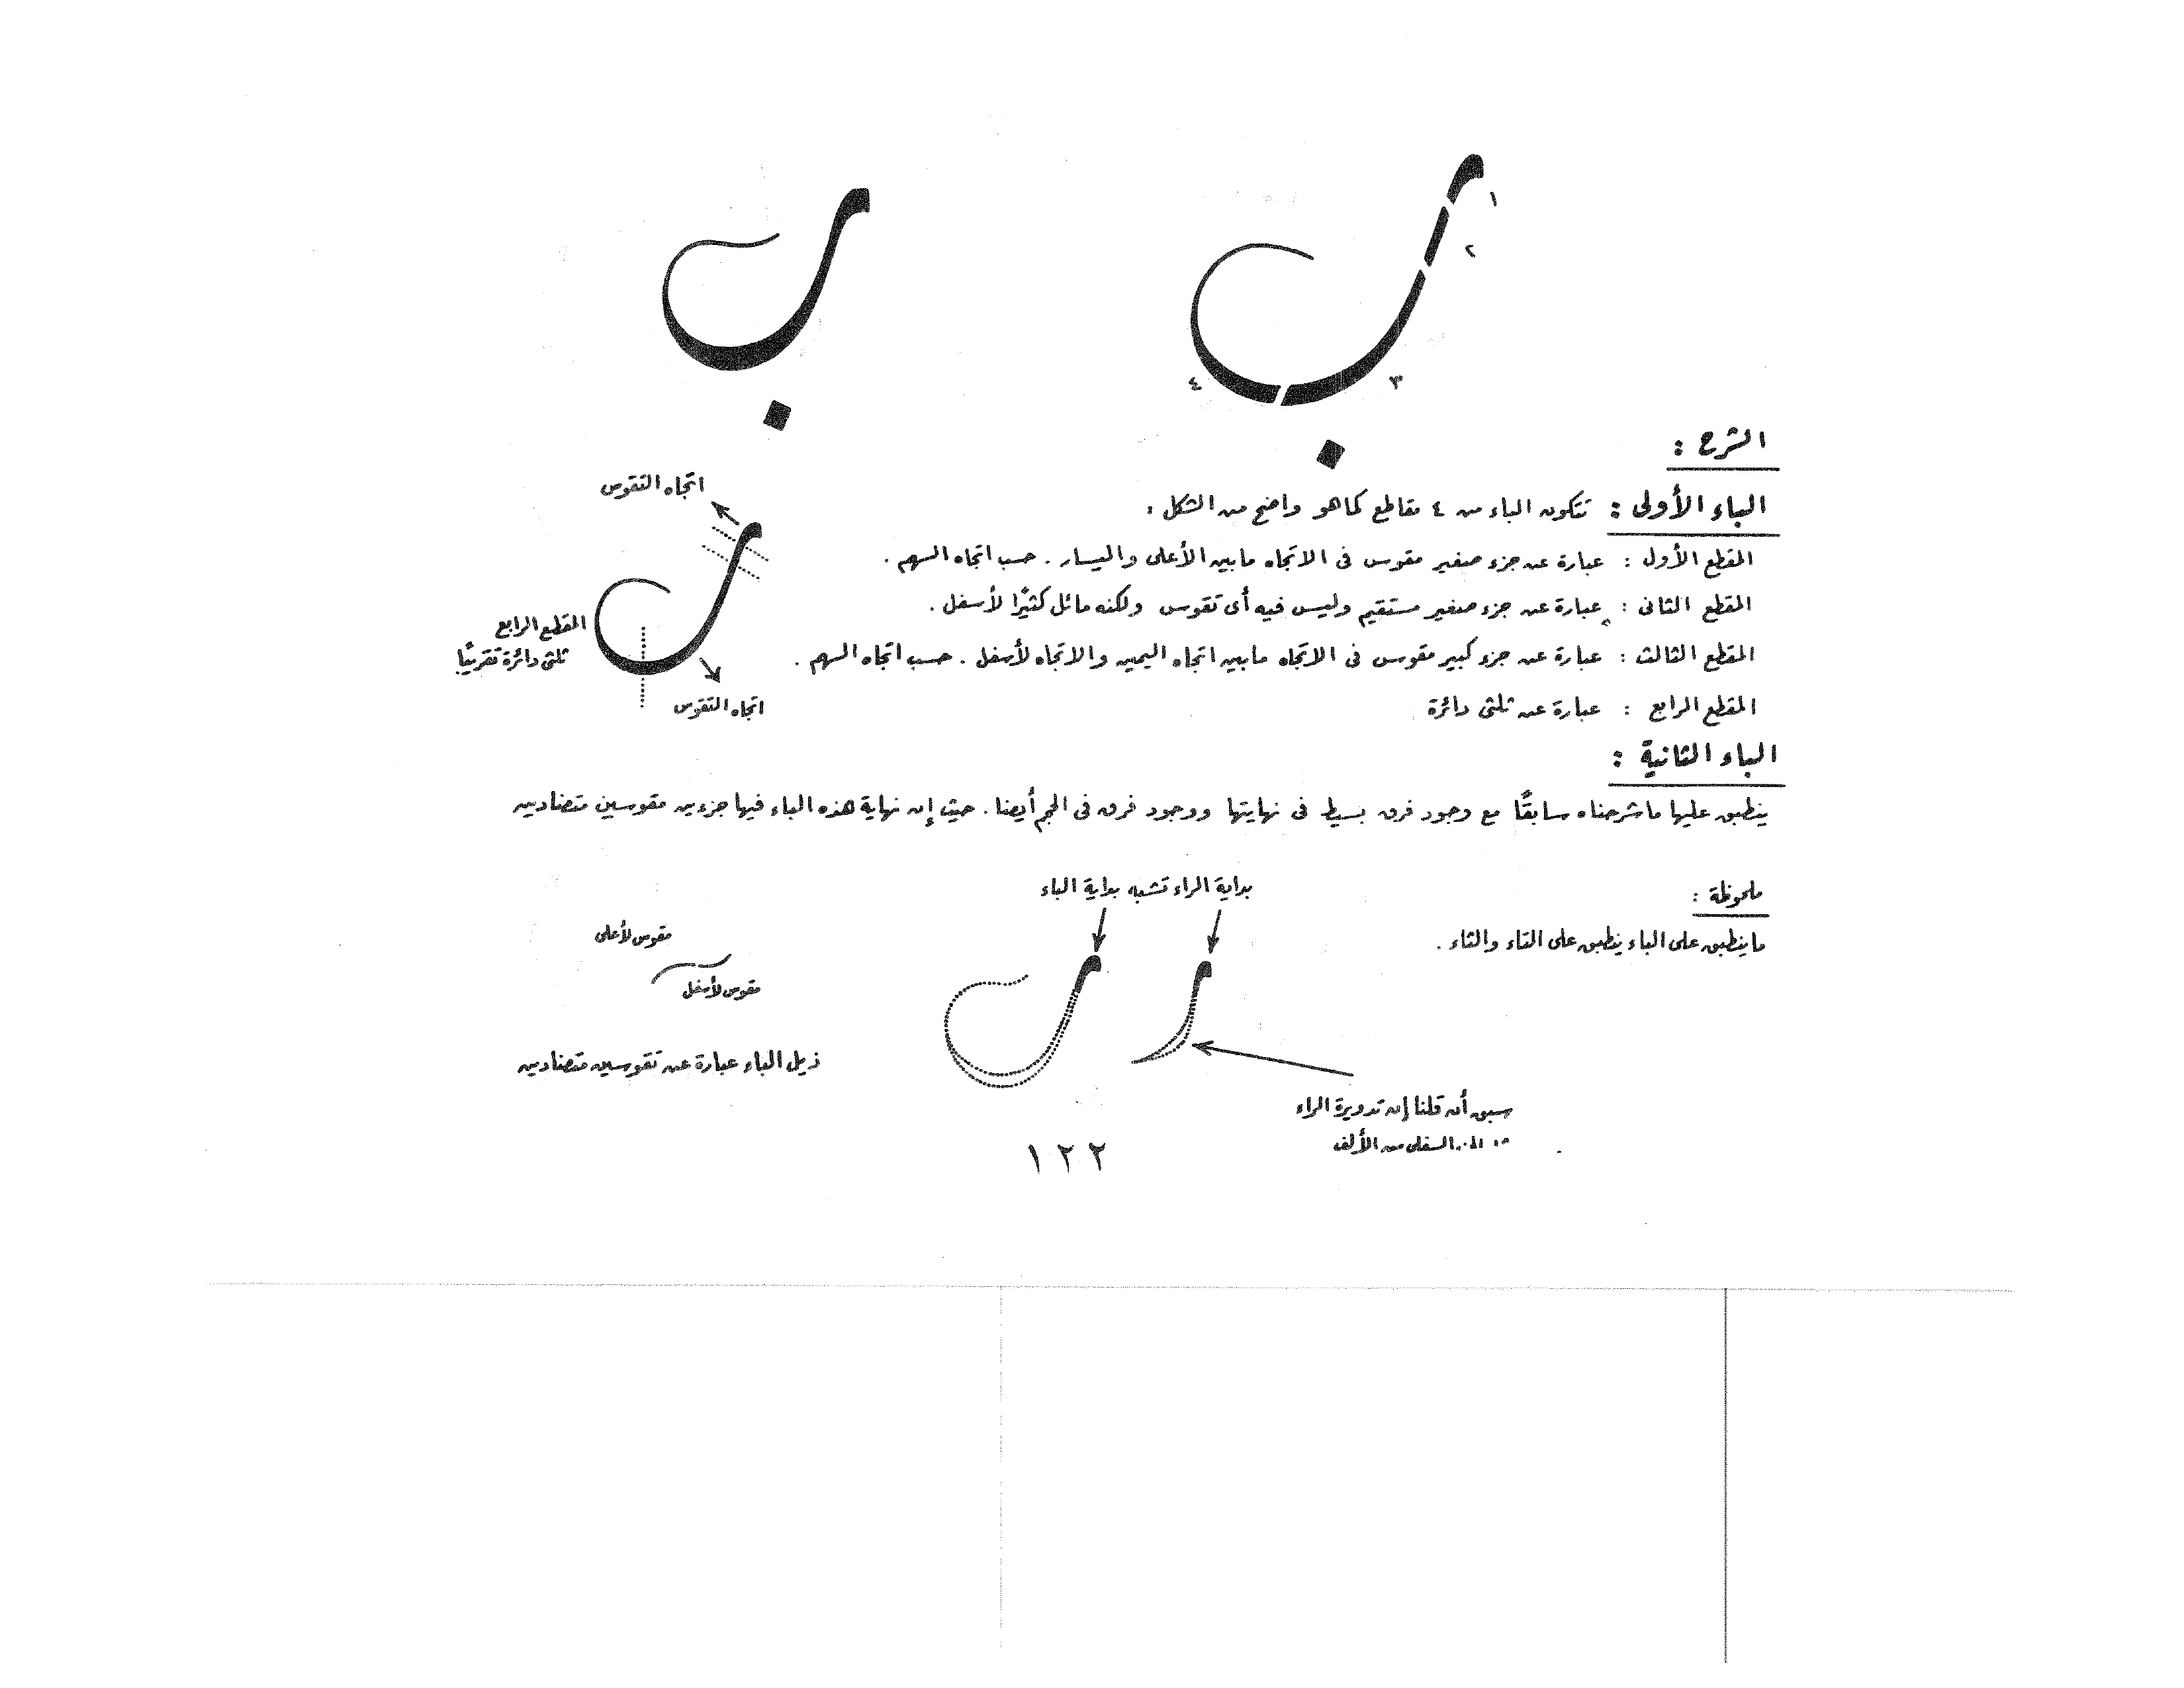 ١
٢
٣
٤
الشرح :
الباء الأولى : تتكون الباء من ٤ مقاطع كما هو واضح من الشكل :
المقطع الأول : عبارة عن جزء صغير مقوس فى الاتجاه ما بين الأعلى واليسار . حسب اتجاه السهم .
المقطع الثانى : عبارة عن جزء صغير مستقيم وليس فيه أى تقوس ولكنه مائل كثيرًا لأسفل .
المقطع الثالث : عبارة عن جزء كبير مقوس فى الاتجاه ما بين اتجاه اليمين والاتجاه لأسفل . حسب اتجاه السهم .
المقطع الرابع : عبارة عن ثلثى دائرة
اتجاه التقوس
المقطع الرابع
ثلثى دائرة تقريبًا
اتجاه التقوس
الباء الثانية :
ينطبق عليها ما شرحناه سابقًا مع وجود فرق بسيط فى نهايتها ووجود فرق فى الحجم أيضا . حيث إن نهاية هذه الباء فيها جزءين مقوسين متضادين
ملحوظة :
ما ينطبق على الباء ينطبق على التاء والثاء .
بداية الراء تشبه بداية الباء
مقوس لأعلى
مقوس لأسفل
ذيل الباء عبارة عن تقوسين متضادين
سبق أن قلنا إن تدويرة الراء
السفلى من الألف
١٢٢